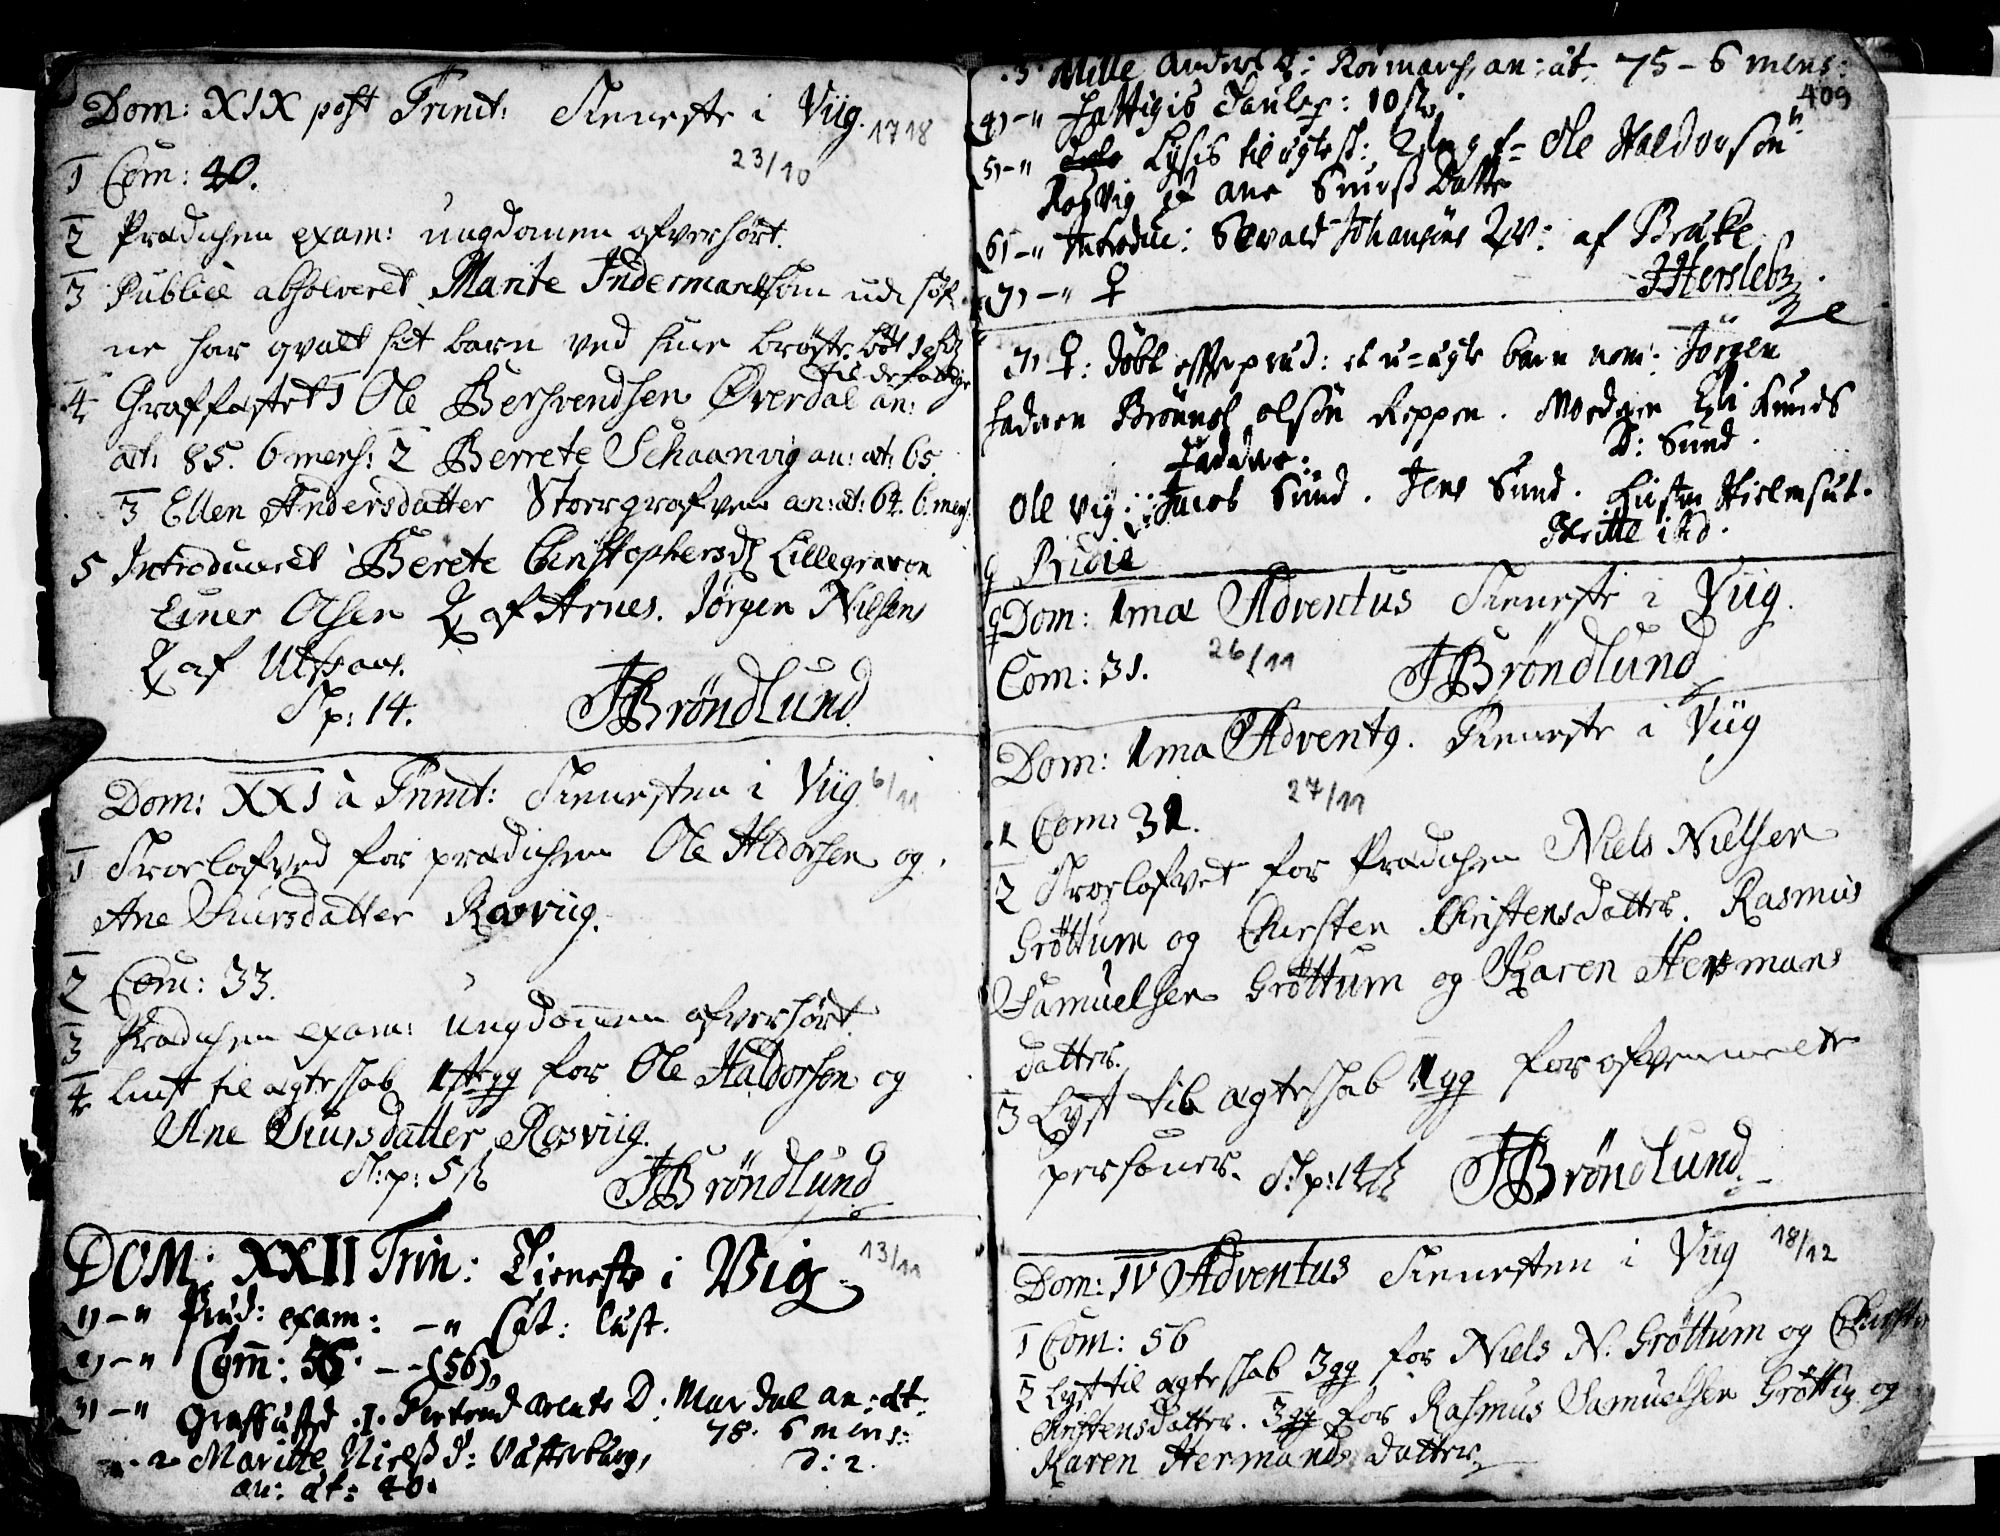 Dom: XIX post Trinit: Tieneste i Viig. 1718
23/10
1 Com: 40.
2 Prædichen exam: ungdomen ofverhørt.
3 Publicè absolveret Marite Indermarch som udi søf
ne har qvalt sit barn ved sine bryster. bøt
til de fattige
4 Graffæstet 1 Ole Bersvendsen Øverdal an:
æt: 85. 6 mens: 2 Berrete Schaanvig an: æt: 65.
3 Ellen Andersdatter Storrgrafven an: æt: 64. 6. mens.
5 Introduceret Berete Christophersd. Lillegraven
Einer Olsen Q. af Arnes. Jørgen Nielsens
Q af Utfaar.
T p: 14.
JBrøndlund.
Dom: XXI à Trinit: Tienesten i Viig. 6/11
1 Troelofved for prædichen Ole Haldorsen og
Ane Siursdatter Rosviig.
2 Com: 33.
3 Prædichen exam: Ungdomen ofverhørt
4 Liust til ægteskab 1st gg for Ole Haldorsen og
Ane Siursdatter Rosviig.
T: p: 5 ß
JBrøndlund
DOM: XXII Trin: Tieneste i Vig. 13/11
1) -" Præd: exam: -" Cat: læst.
2) -" Com̄: 56. - -(56),
3) -" Graffæsted .1. Bertend Arents D: Mardal an: æt:
78. 6 mens:
2 Maritte Nielß d: Västerberg, d: 2.
an: æt: 40.
.3. Mille Anders D: Rormarch, an: æt: 75 - 6 mens:
409
4) -" Fattigis Taufle: 10 ß.
5) -" Lysis til ægtesk: 2den g f= Ole Haldorsøn
Rosvig & Ane Siurß Datter
6) -" Introduc: Sivald Johansøns Qv: af Brække.
7) -" ♀
JHersleb
7) ♀: døbt effter præd: et u=ægte barn nom: Jörgen
fadren Brönnel olsön Reppen. Moderen Eli Knuds
D: Sund.
Faddre:
Ole Vig: Jacob Sund. Jens Sund. Kirsten Hielmsut.
Britte ibd.
Pridie
Dom: 1mæ Adventus Tieneste i Viig.
26/11
Com: 31.
JBrøndlund
Dom: 1ma Advent9. Tieneste i Viig
27/11
1 Com: 31.
2 Troelofvet for Prædichen Niels Nielsen
Grøttum og Chirsten Christensdatter. Rasmus
Samuelsen Grøttum og Karen Hermans
datter.
3 Lyst til ægteskab 1 gg for ofvenmelte
personer. T: p: 14 ß
JBrøndlund.
Dom: IV Adventus Tienesten i Viig 18/12
1 Com: 56
2 Lyst til ægteskab 3 gg for Niels N. Grøttum og Chirsten
Christensdatter. 3 gg for Rasmus Samuelsen Grøttum og
Karen Hermands datter